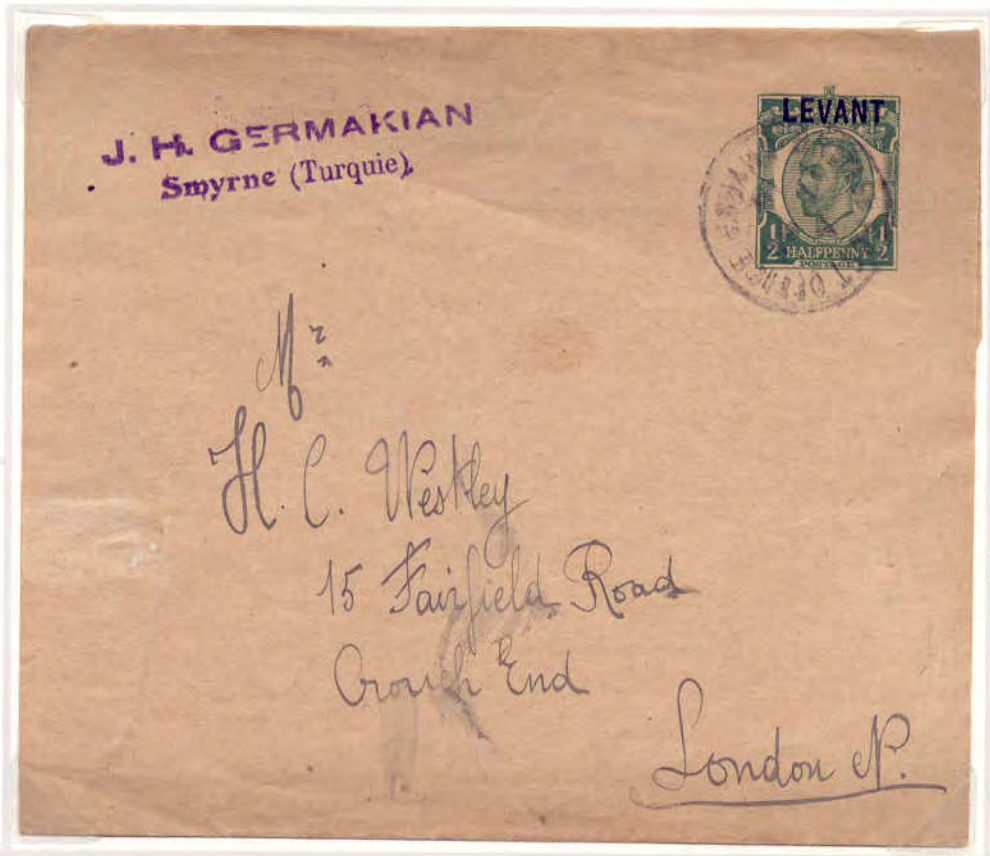 J. H. GERMAKIAN
Smyrne (Turquie)
LEVANT
1/2 HALFPENNY 1/2
POSTAGE
Mr
H. C. Westley
15 Fairfield Road
Crouch End
London N.